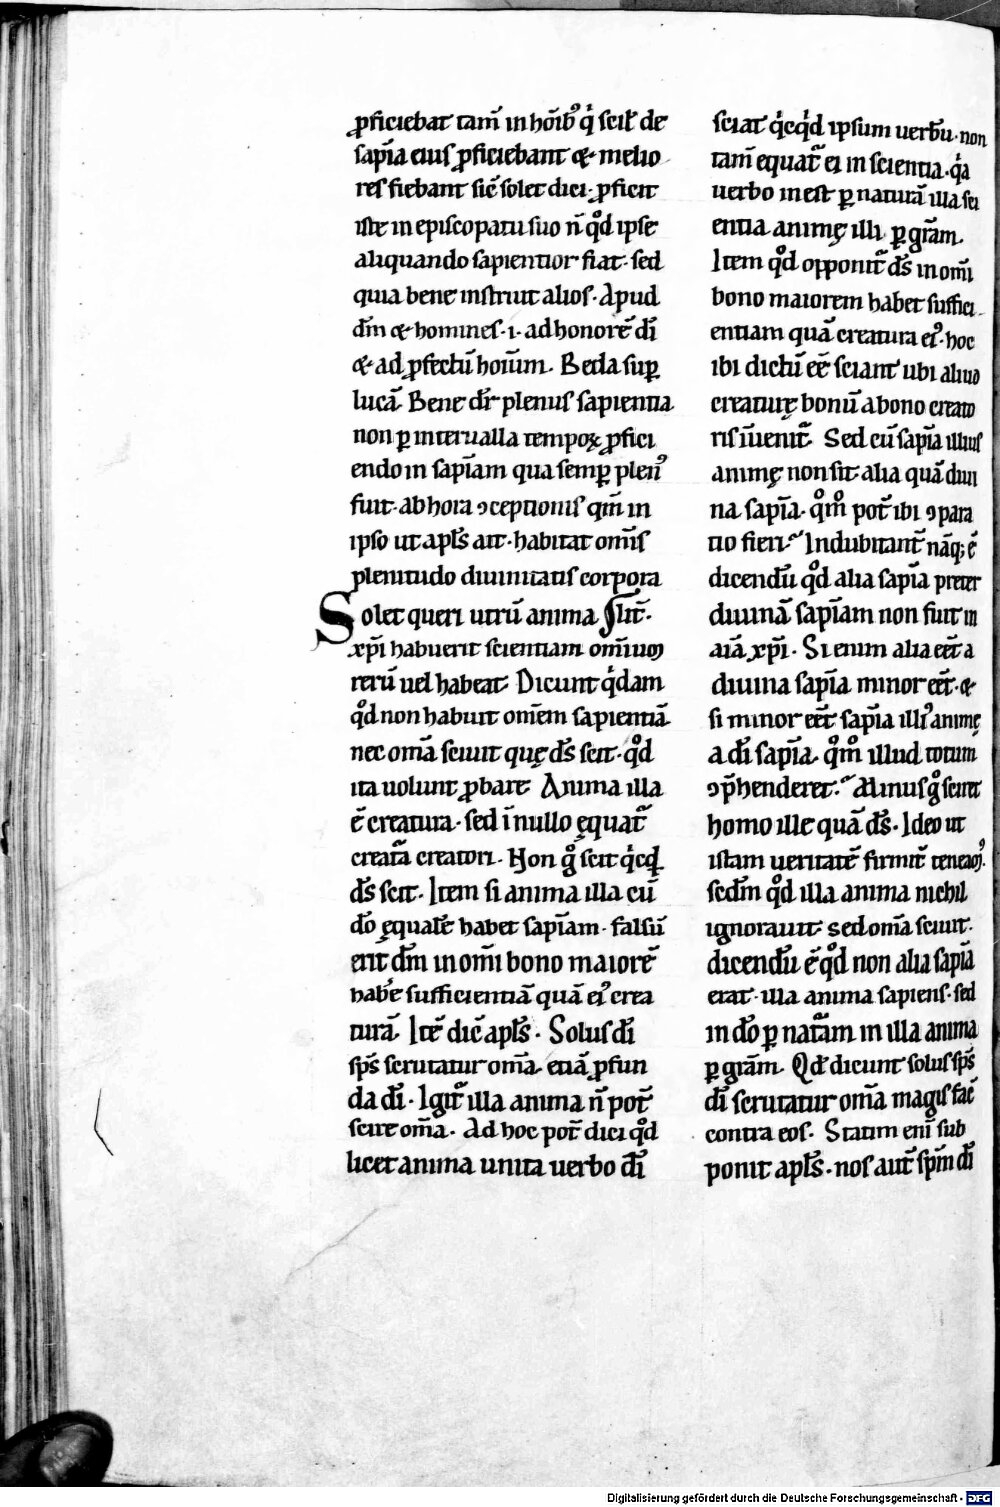 ꝓficiebat tam̄ in ho̅ib᷒ qͥ scil̄ de
sap̅ia eius ꝓficiebant ⁊ melio
res fiebant sic̄ solet dici. ꝓficit
iste in episcopatu suo n̄ qͦd ipse
aliquando sapientior fiat. sed
quia bene instruit alios. Apud
dm̄ ⁊ homines .i. ad honorē dī
⁊ ad ꝓfectū hoīum. Beda suꝑ
lucā. Bene dr̄ plenus sapientia
non ꝑ interualla tempoꝝ ꝓfici
endo in sap̅iam qua semꝑ plen᷒
fuit. ab hora ꝯceptionis qm̄ in
ipso ut apl̅s ait. habitat om̅is
plenitudo diuinitatis corpora
Solet queri utrū anima lit̄.
xp̅i habuerit scientiam om̅iuꝫ
rerū uel habeat. Dicunt qͥdam
qͦd non habuit om̅em sapientiā
nec om̅a sciuit quę ds̅ scit. qͦd
ita uolunt ꝓbare. Anima illa
ē creatura. sed ī nullo ęquat᷑
creat᷑a creatori. Non gͦ scit qͥcqͥd
ds̅ scit. Item si anima illa cū
dō ęqualē habet sap̅iam. falsū
erit dm̄ in om̅i bono maiorē
habe᷑ sufficientiā quā ei᷒ crea
turā. Itē dic̄ apl̅s. Solus dī
sp̅s scrutatur om̅a. etiā ꝓfun
da dī. Igit᷑ illa anima n̄ pot̄
scire om̅a. Ad hoc pot̄ dici qͦd
licet anima unita uerbo dī
sciat qͥcqͥd ipsum uerbū. non
tam̄ equat᷑ ei in scientia. qͥa
uerbo inest ꝑ naturā illa sci
entia animę illi ꝑ gr̅am.
Item qͦd opponit᷑ ds̅ in om̅i
bono maiorem habet suffici
entiam quā creatura ei᷒. hoc
ibi dictū eē sciant ubi aliud
creaturę bonū a bono creato
ris īuenit᷑. Sed cū sap̅ia illius
animę non sit alia quā diui
na sap̅ia. qͦmͦ pot̄ ibi ꝯpara
tio fieri? Indubitant᷑ nāqꝫ ē
dicendū qͦd alia sap̅ia preter
diuinā sap̅iam non fuit in
aīa xp̅i. Si enim alia eēt a
diuina sap̅ia minor eēt. ⁊
si minor eēt sap̅ia illi᷒ animę
a dī sap̅ia. qͦmͦ illud totum
ꝯp̅henderet? Minus gͦ sciret
homo ille quā ds̅. Ideo ut
istam ueritatē firmit᷑ teneam᷒.
scdm̄ qͦd illa anima nichil
ignorauit. sed om̅a sciuit.
dicendū ē qͦd non alia sap̅ia
erat. illa anima sapiens. sed
in dō ꝑ nat᷑am in illa anima
ꝑ gr̅am. Qd̄ dicunt solus sp̅s
dī scrutatur om̅a magis fac̄
contra eos. Statim enī sub
ponit apl̅s. nos aut̄ sp̅m dī
Digitalisierung gefördert durch die Deutsche Forschungsgemeinschaft - DFG